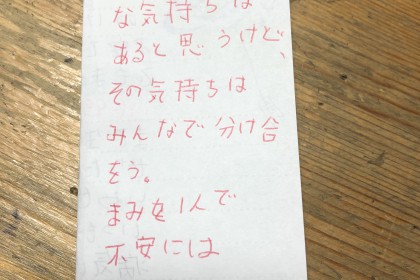 な気持ちは
あると思うけど、
その気持ちは
みんなで分け合
をう。
まみを1人で
不安には